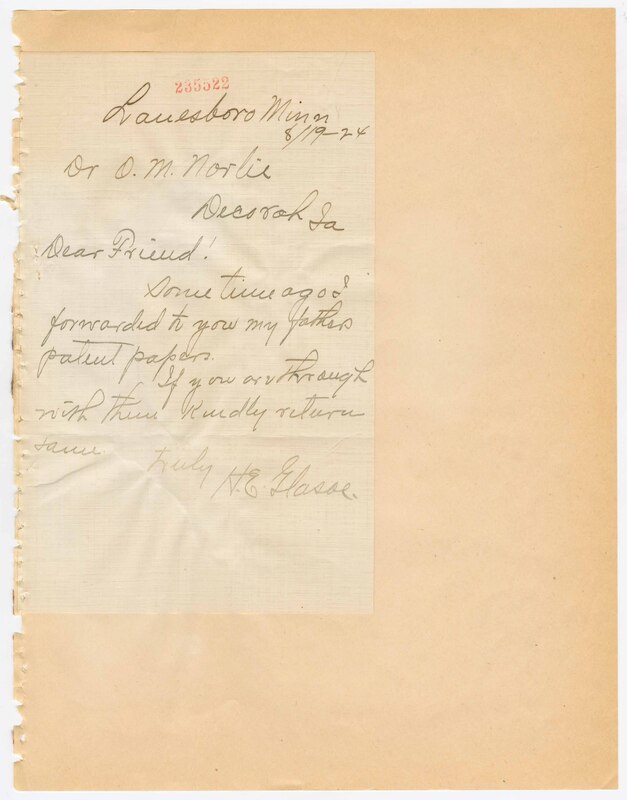 235522
Lanesboro Minn
8/19-24
Dr O. M. Norlie
Decorah Ia
Dear Friend!
Some time ago I
forwarded to you my fathers
patent papers.
If you are through
with them Kindly return
same
truly
H.E. Glasoe.